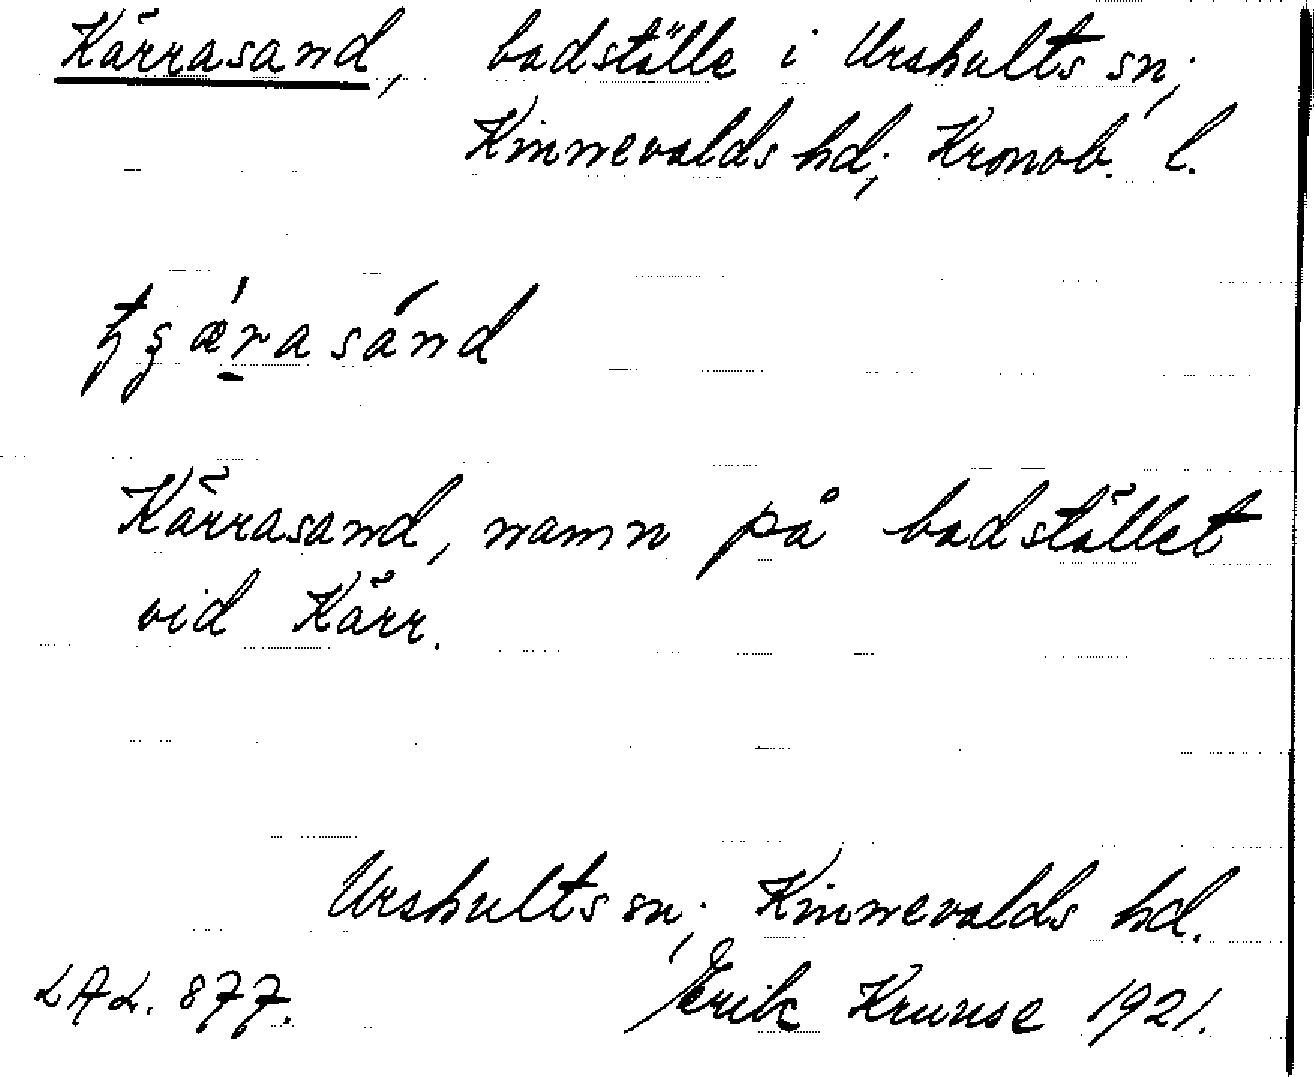 Kärrasand, badställe i Urshults sn;
Kinnevalds hd; Kronob. l.
Kärrasand, namn på badstället
vid Kärr.
Urshults sn; Kinnevalds hd.
LAL. 877. Erik Kruuse 1921.